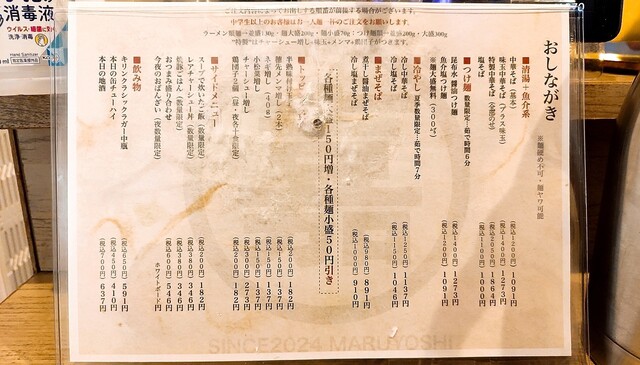 消毒液
ウイルス・細菌に効く
消毒
Hand Sanitizer
ご注文内容によってお出しする順番が前後する場合がございます。
中学生以上のお客様はお一人麺一杯のご注文をお願いします。
ラーメン類麺→並盛130g・麺大盛200g・麺小盛70g：つけ麺類→並盛200g・大盛300g
*特製*はチャーシュー増し+味玉+メンマ+鶏団子がつきます。
おしながき
※麺硬め不可・麺ヤワ可能
■清湯＋魚介系
中華そば（基本）（税込1200円）1091円
味玉中華そば（プラス味玉）（税込1400円）1273円
特製中華そば（全部のせ）（税込2050円）1864円
塩そば（税込1100円）1000円
■つけ麺 数量限定…茹で時間6分
昆布水醤油つけ麺（税込1400円）1273円
魚介塩つけ麺（税込1200円）1091円
※麺大盛無料（300g）
■冷やし 夏季数量限定…茹で時間7分
冷やし中華そば（税込1250円）1137円
冷やし塩そば（税込1150円）1046円
■まぜそば
煮干し醤油まぜそば（税込980円）891円
冷やし塩まぜそば（税込1000円）910円
各種麺大盛150円増・各種麺小盛50円引き
■トッピング
半熟味付け玉子（税込200円）182円
穂先メンマ増し（2本）（税込150円）137円
小松菜増し（税込150円）137円
ネギ増し（40g）（税込150円）137円
チャーシュー増し（税込300円）273円
鶏団子（税込200円）182円
■サイドメニュー
スープで炊いたご飯（数量限定）（税込200円）182円
レアチャーシュー丼（数量限定）（税込380円）346円
焦豚ごはん（数量限定）（税込380円）346円
おつまみ盛り合わせ（税込600円）546円
今夜のおばんざい（夜数量限定）ホワイトボード
■飲み物
キリンクラシックラガー中瓶（税込650円）591円
本日の缶チューハイ（税込450円）410円
本日の地酒（税込700円）637円
SINCE2024 MARUYOSHI